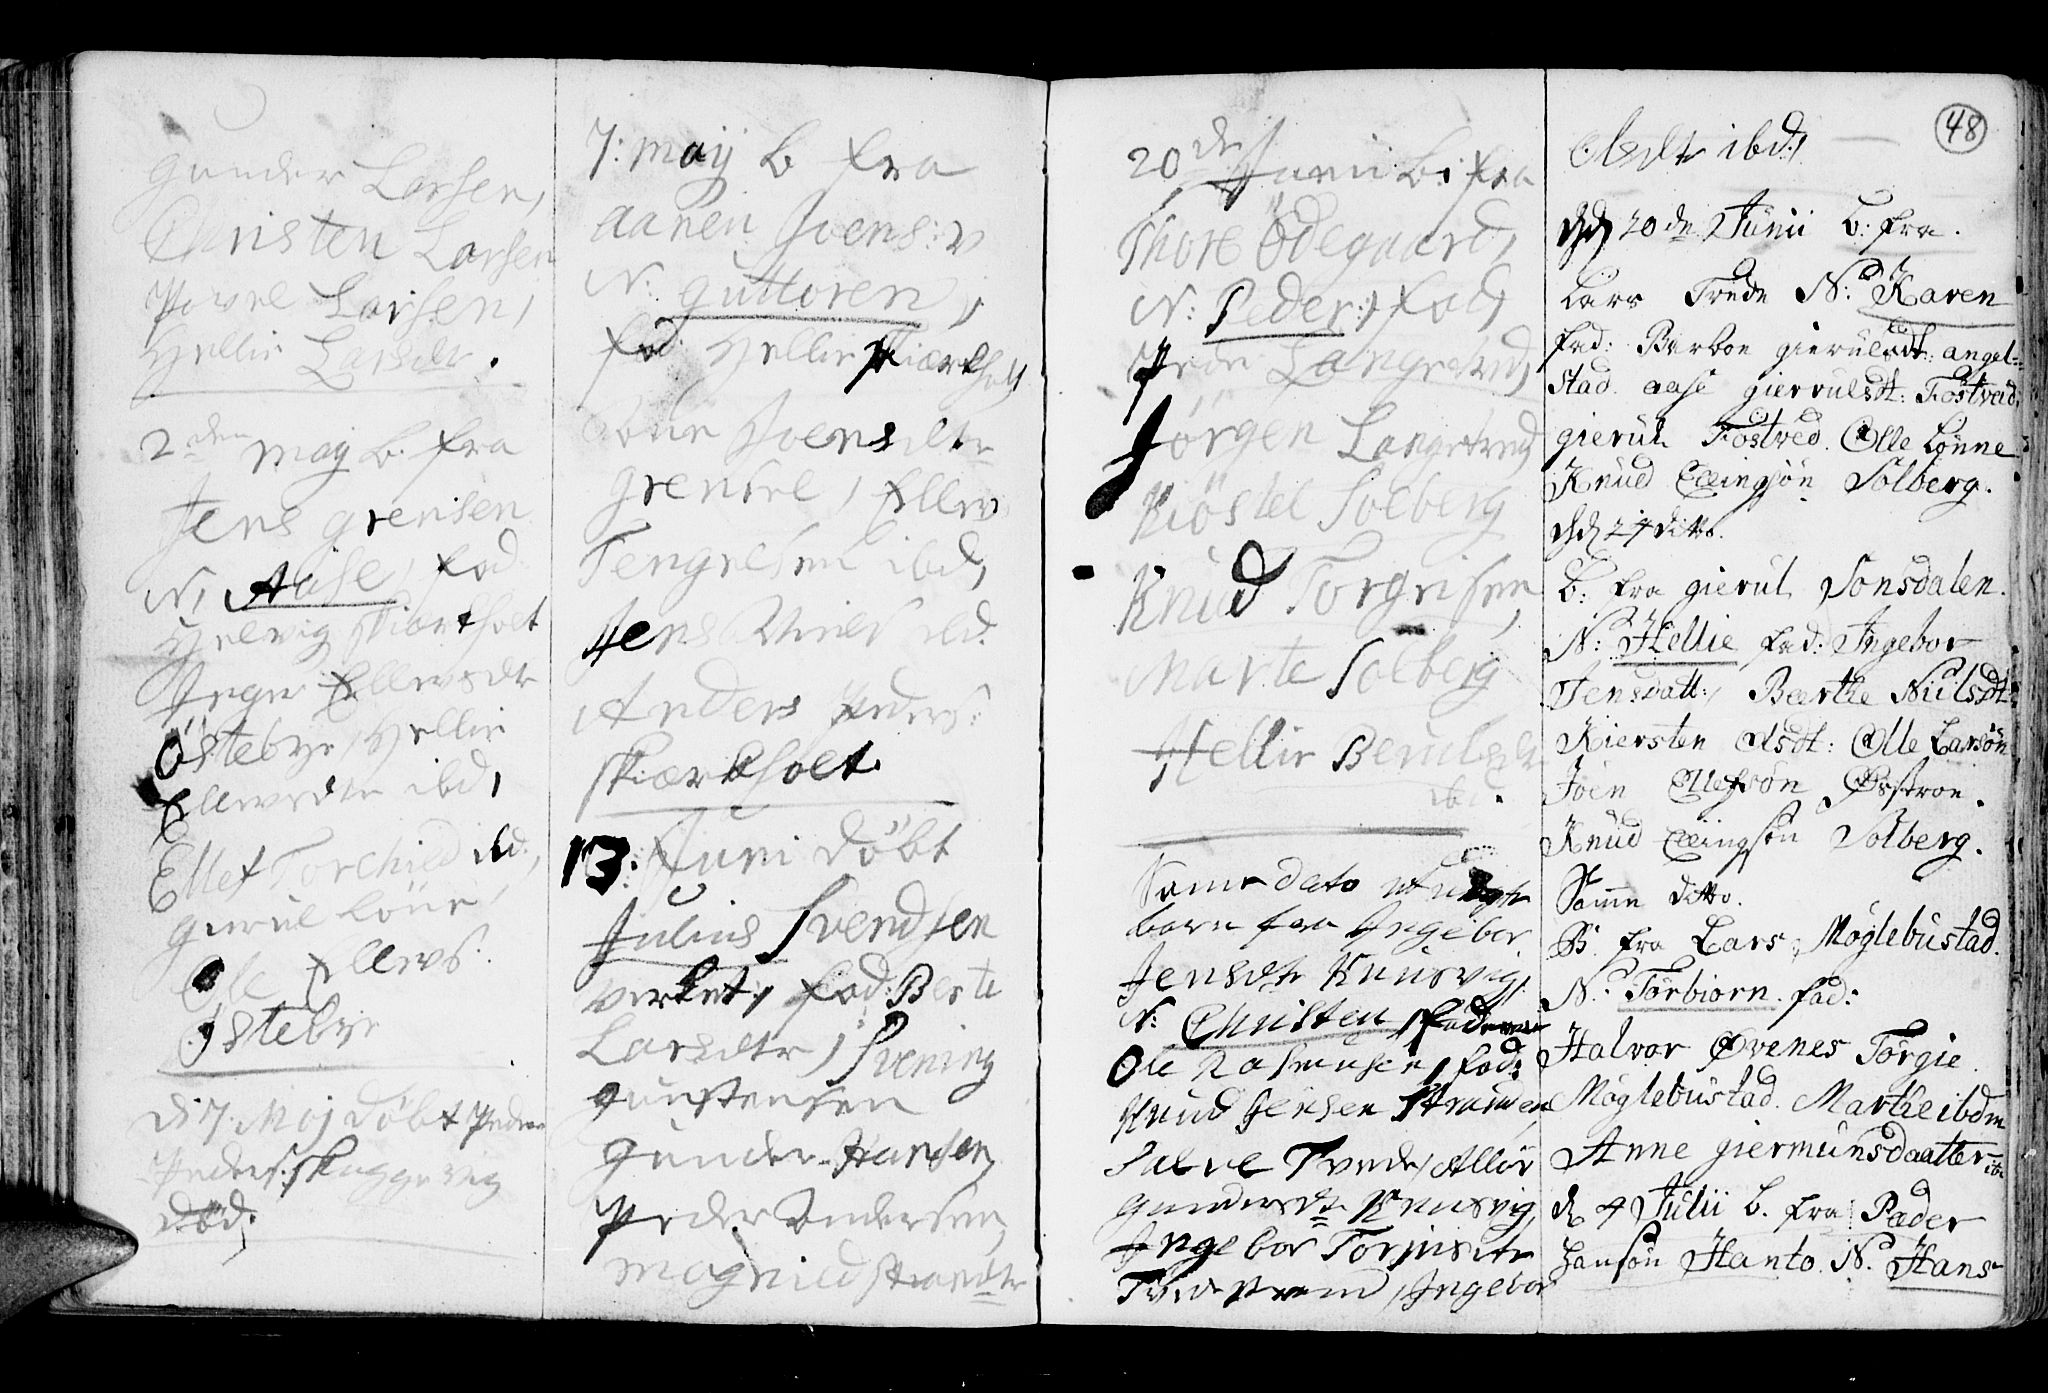 gunder Larsen,
Christen Larsen
Povel Larsen,
Hellie Larsdtr.
2den Maij b. fra
Jens grensen
N, Aase, fad.
Helvig Skiærkholt
Inger Ellevsdtr
Östebye, Hellie
Ellevsdtr ibd,
Ellef Torchild ibd,
gierul Löne,
Ole Ellevs:
Östebye
d: 7. Maj döbt Peder
Peders: Skuggevig
död;
7: maij b fra
aanen Joens:
N: guttoren,
fad Hellie Skiærkholt
Joens dtr
grensel, Ellev
Tengelsen ibd,
Jens Niels ibd.
Anders Peders:
Skiærkholt.
13: Juni döbt
Julius Svendsen
verket, fad: Berte
Larsdtr, Svening
gunstensen
gunder Hansen,
Peder Andersen,
Magnild
20de Junii b: fra
Thore Ödegaard,
N: Peder, fad,
Peder Langetved,
Jörgen Langetved
Kiöstel Solberg
Knud Torgrisen,
Marte Solberg
Hellie
ibd.
Same dato
barn fra Ingebor
Jensdtr Knusvig,
N: Christen, faderen
Ole Rasmusen, fad:
Knud Jensen Stranden
Salve Tvede, Allör
gundersdtr Knusvig,
Ingebor Torjusdtr
Tvedestrand, Ingebor
48
Olsdtr ibd,
Dend 20de Junii b: fra.
Lars Trede N: Karen
fad: Barboe gierulsdt: angel=
stad. aase gierulsdt: Fostved,
gierul Fostved. Olle Lönne
Knud Ellingsön Solberg.
Dend 24 ditto.
b: fra gierul Sonsdalen.
N: Hellie fad: Ingebor
Jensdatt:, Barthe Nielsdt:
Kiersten Olsdt: Olle Larsön
Joen Ellefsön Østtroe.
Knud Ellingsön Solberg.
Samme ditto.
B. fra Lars Möglebustad.
N: Torbiorn. fad:
Halvor Øvenes Torgie
Möglebustad. Marthe ibdm
Anne giermunsdaatter ib:
d. 4 Julii b. fra Peder
Hansön Hanto. N. Hans